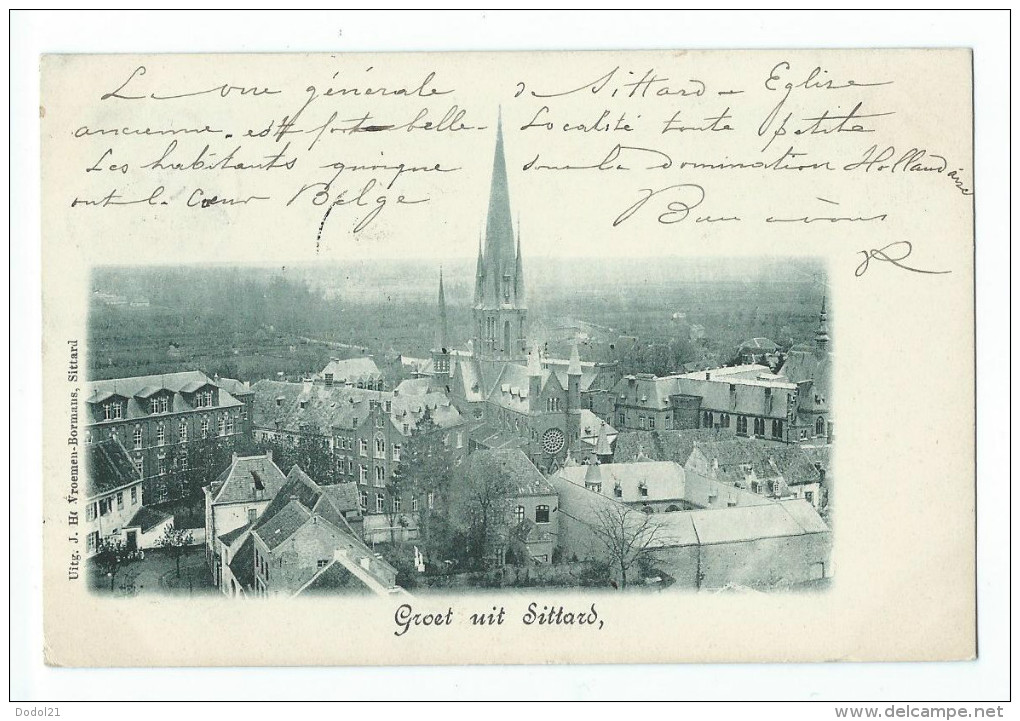 La vue générale de Sittard - Eglise
ancienne - est fort belle - Localité toute petite
Les habitants quoique sous la domination Hollandaise
ont le Cœur Belge
Bien à vous
Uitg. J. H. Vroemen-Bormans, Sittard
Groet uit Sittard,
Dodol21
www.delcampe.net